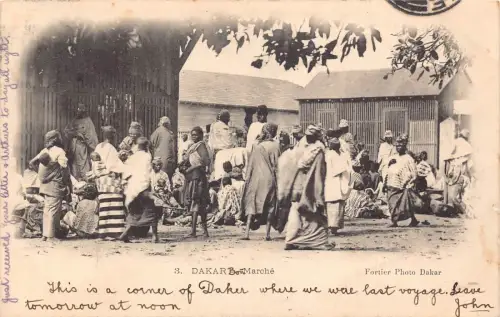 just received your letter + Arthur's to-day all right
3. DAKAR — Marché
Fortier Photo Dakar
This is a corner of Dakar where we were last voyage. Leave
tomorrow at noon
John